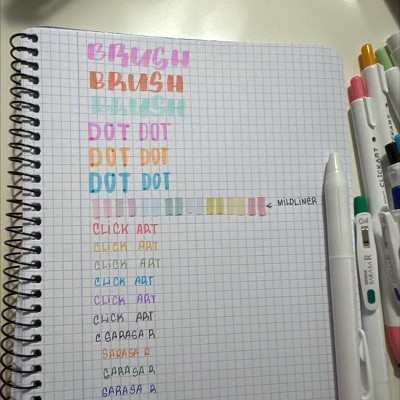 BRUSH
BRUSH
BRUSH
DOT DOT
DOT DOT
DOT DOT
← MILDLINER
CLICK ART
CLICK ART
CLICK ART
CLICK ART
CLICK ART
CLICK ART
C SARASA R
SARASA R
SARASA R
SARASA R
CLICKART
SARASA R